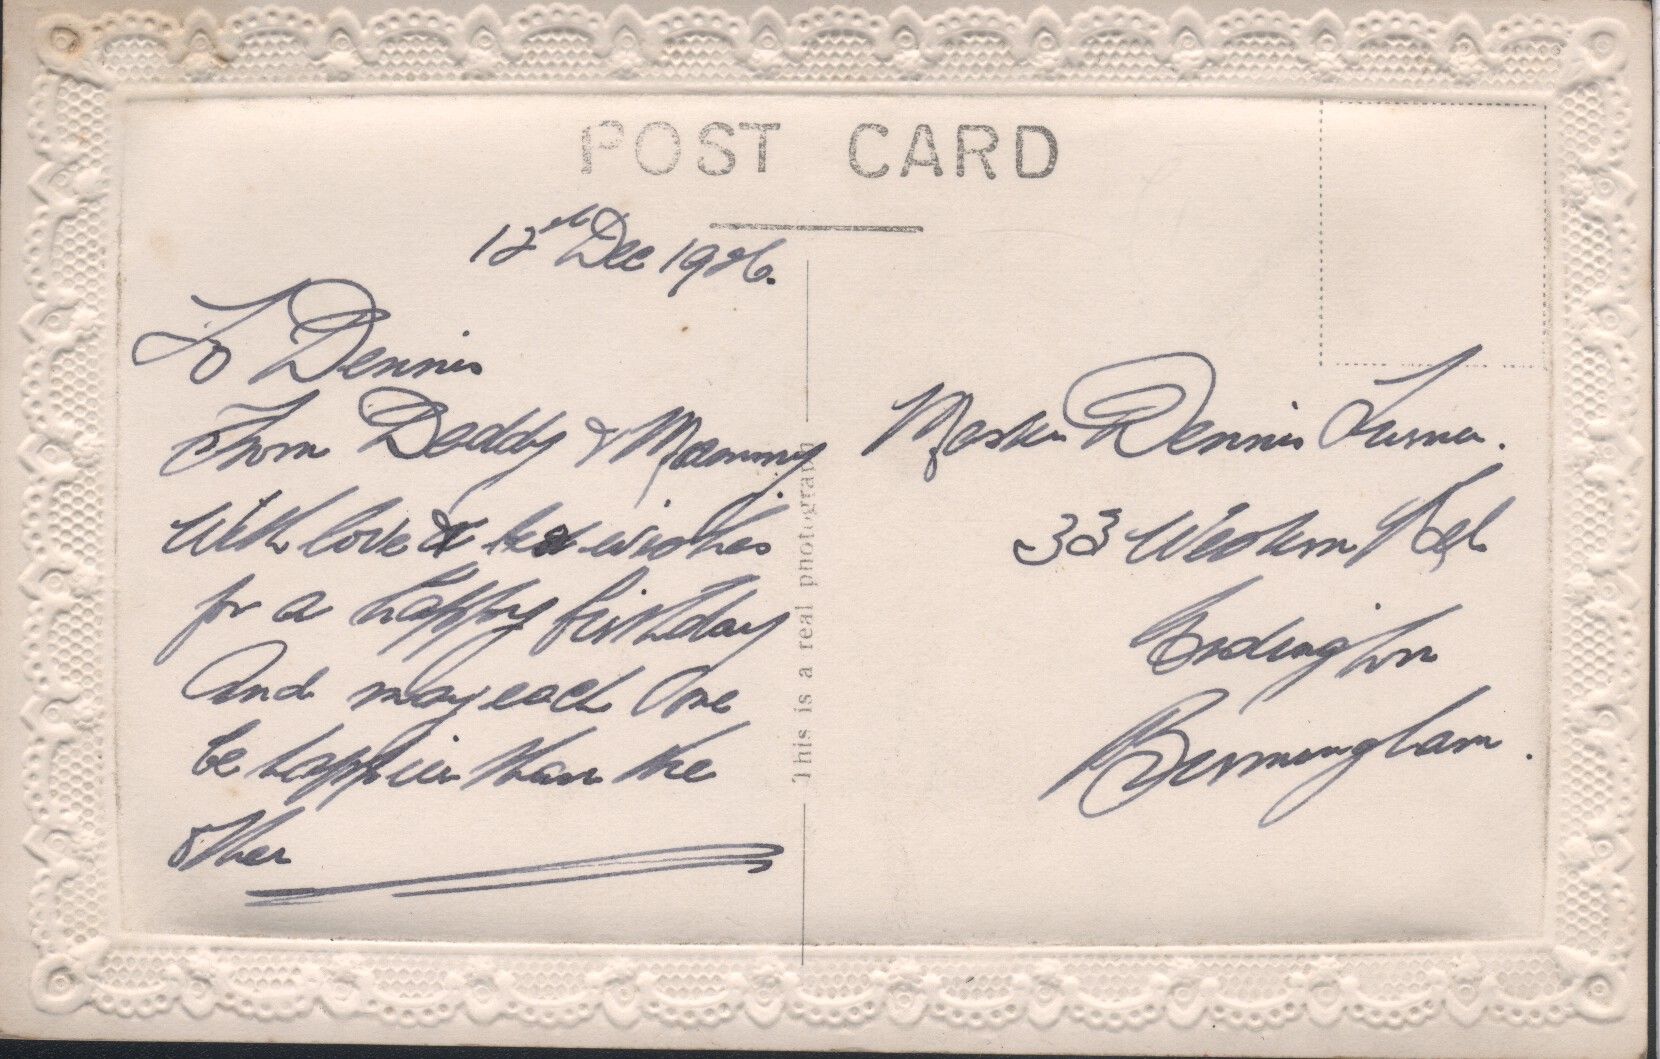 POST CARD
12th Dec 1926.
To Dennis
From Daddy & Mammy
With love & best wishes
for a happy birthday
And may each One
be happier than the
Other
This is a real photograph
Master Dennis Turner.
33 Western Rd
Erdington
Birmingham.